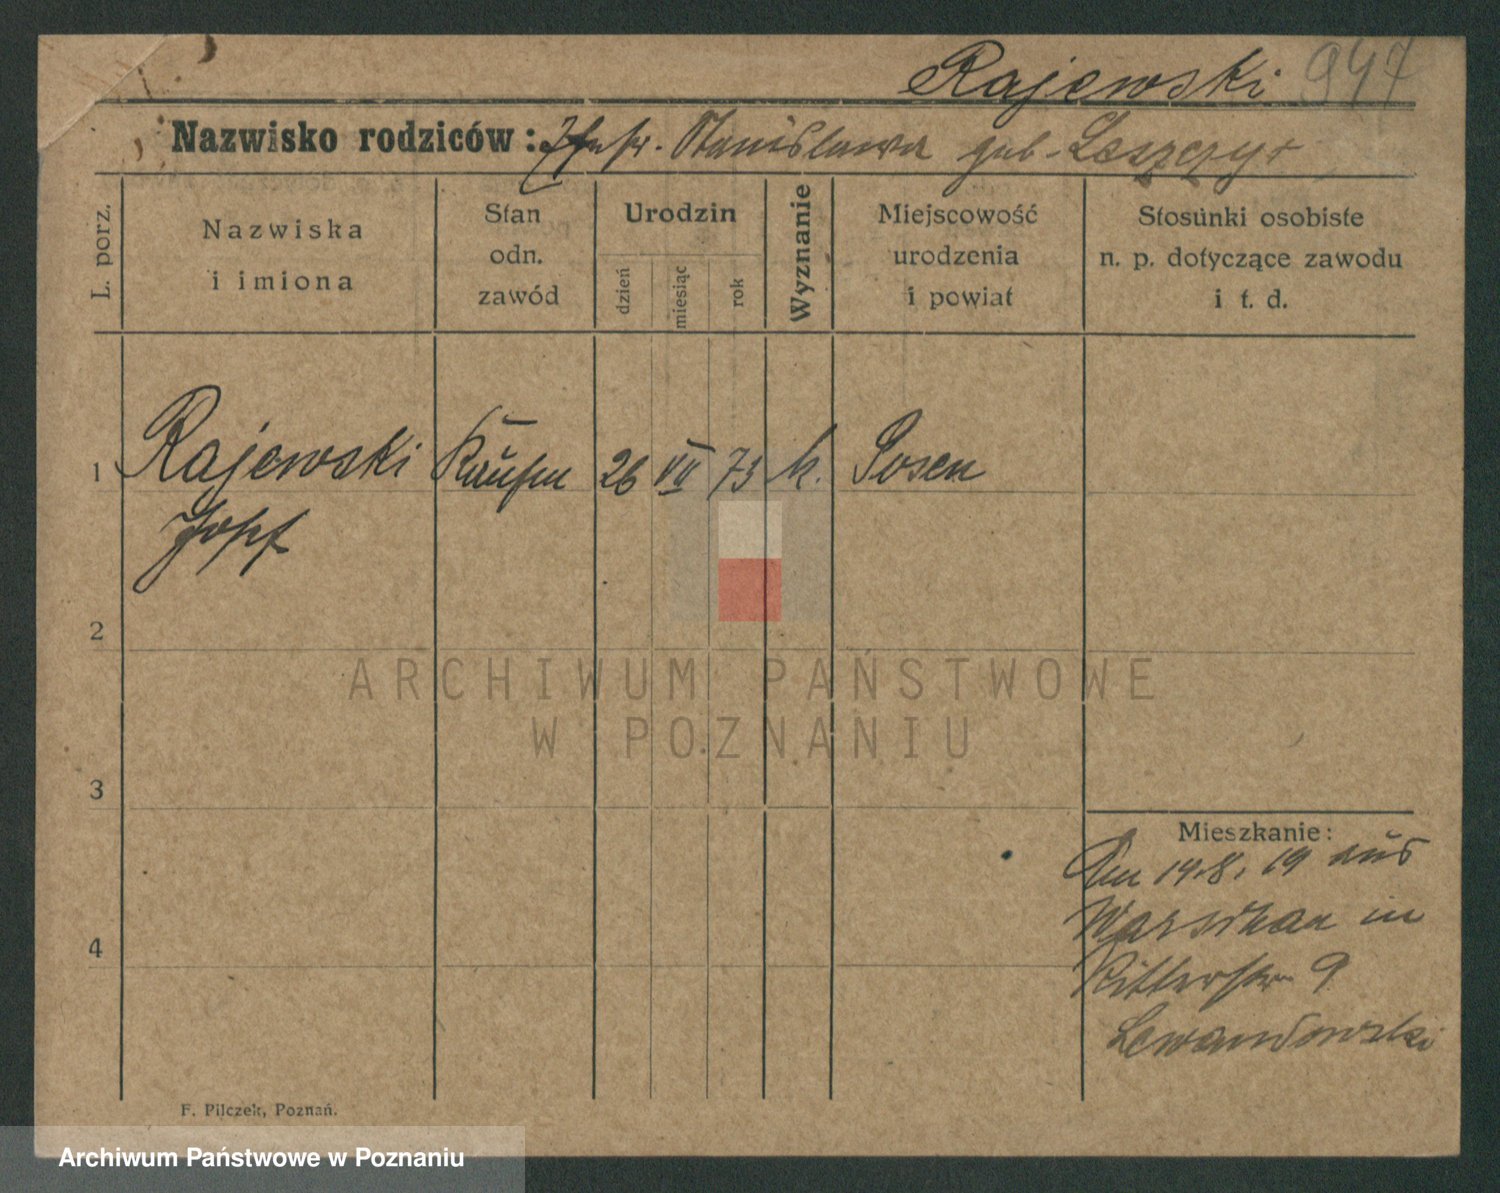 Rajewski 947
Nazwisko rodziców: Stanisława geb. Leszczy
L. porz.
Nazwiska
i imiona
Stan
odn.
zawód
Urodzin
dzień
miesiąc
rok
Wyznanie
Miejscowość
urodzenia
i powiat
Stosunki osobiste
n. p. dotyczące zawodu
i t. d.
1 Rajewski Kaufm 26 VII 73 k. Posen
Josef
2
ARCHIWUM PAŃSTWOWE
W POZNANIU
3
Mieszkanie:
Am 14.8.19 aus
Warschau in
4
Ritterstr 9
Lewandowski
F. Pilczek, Poznań.
Archiwum Państwowe w Poznaniu